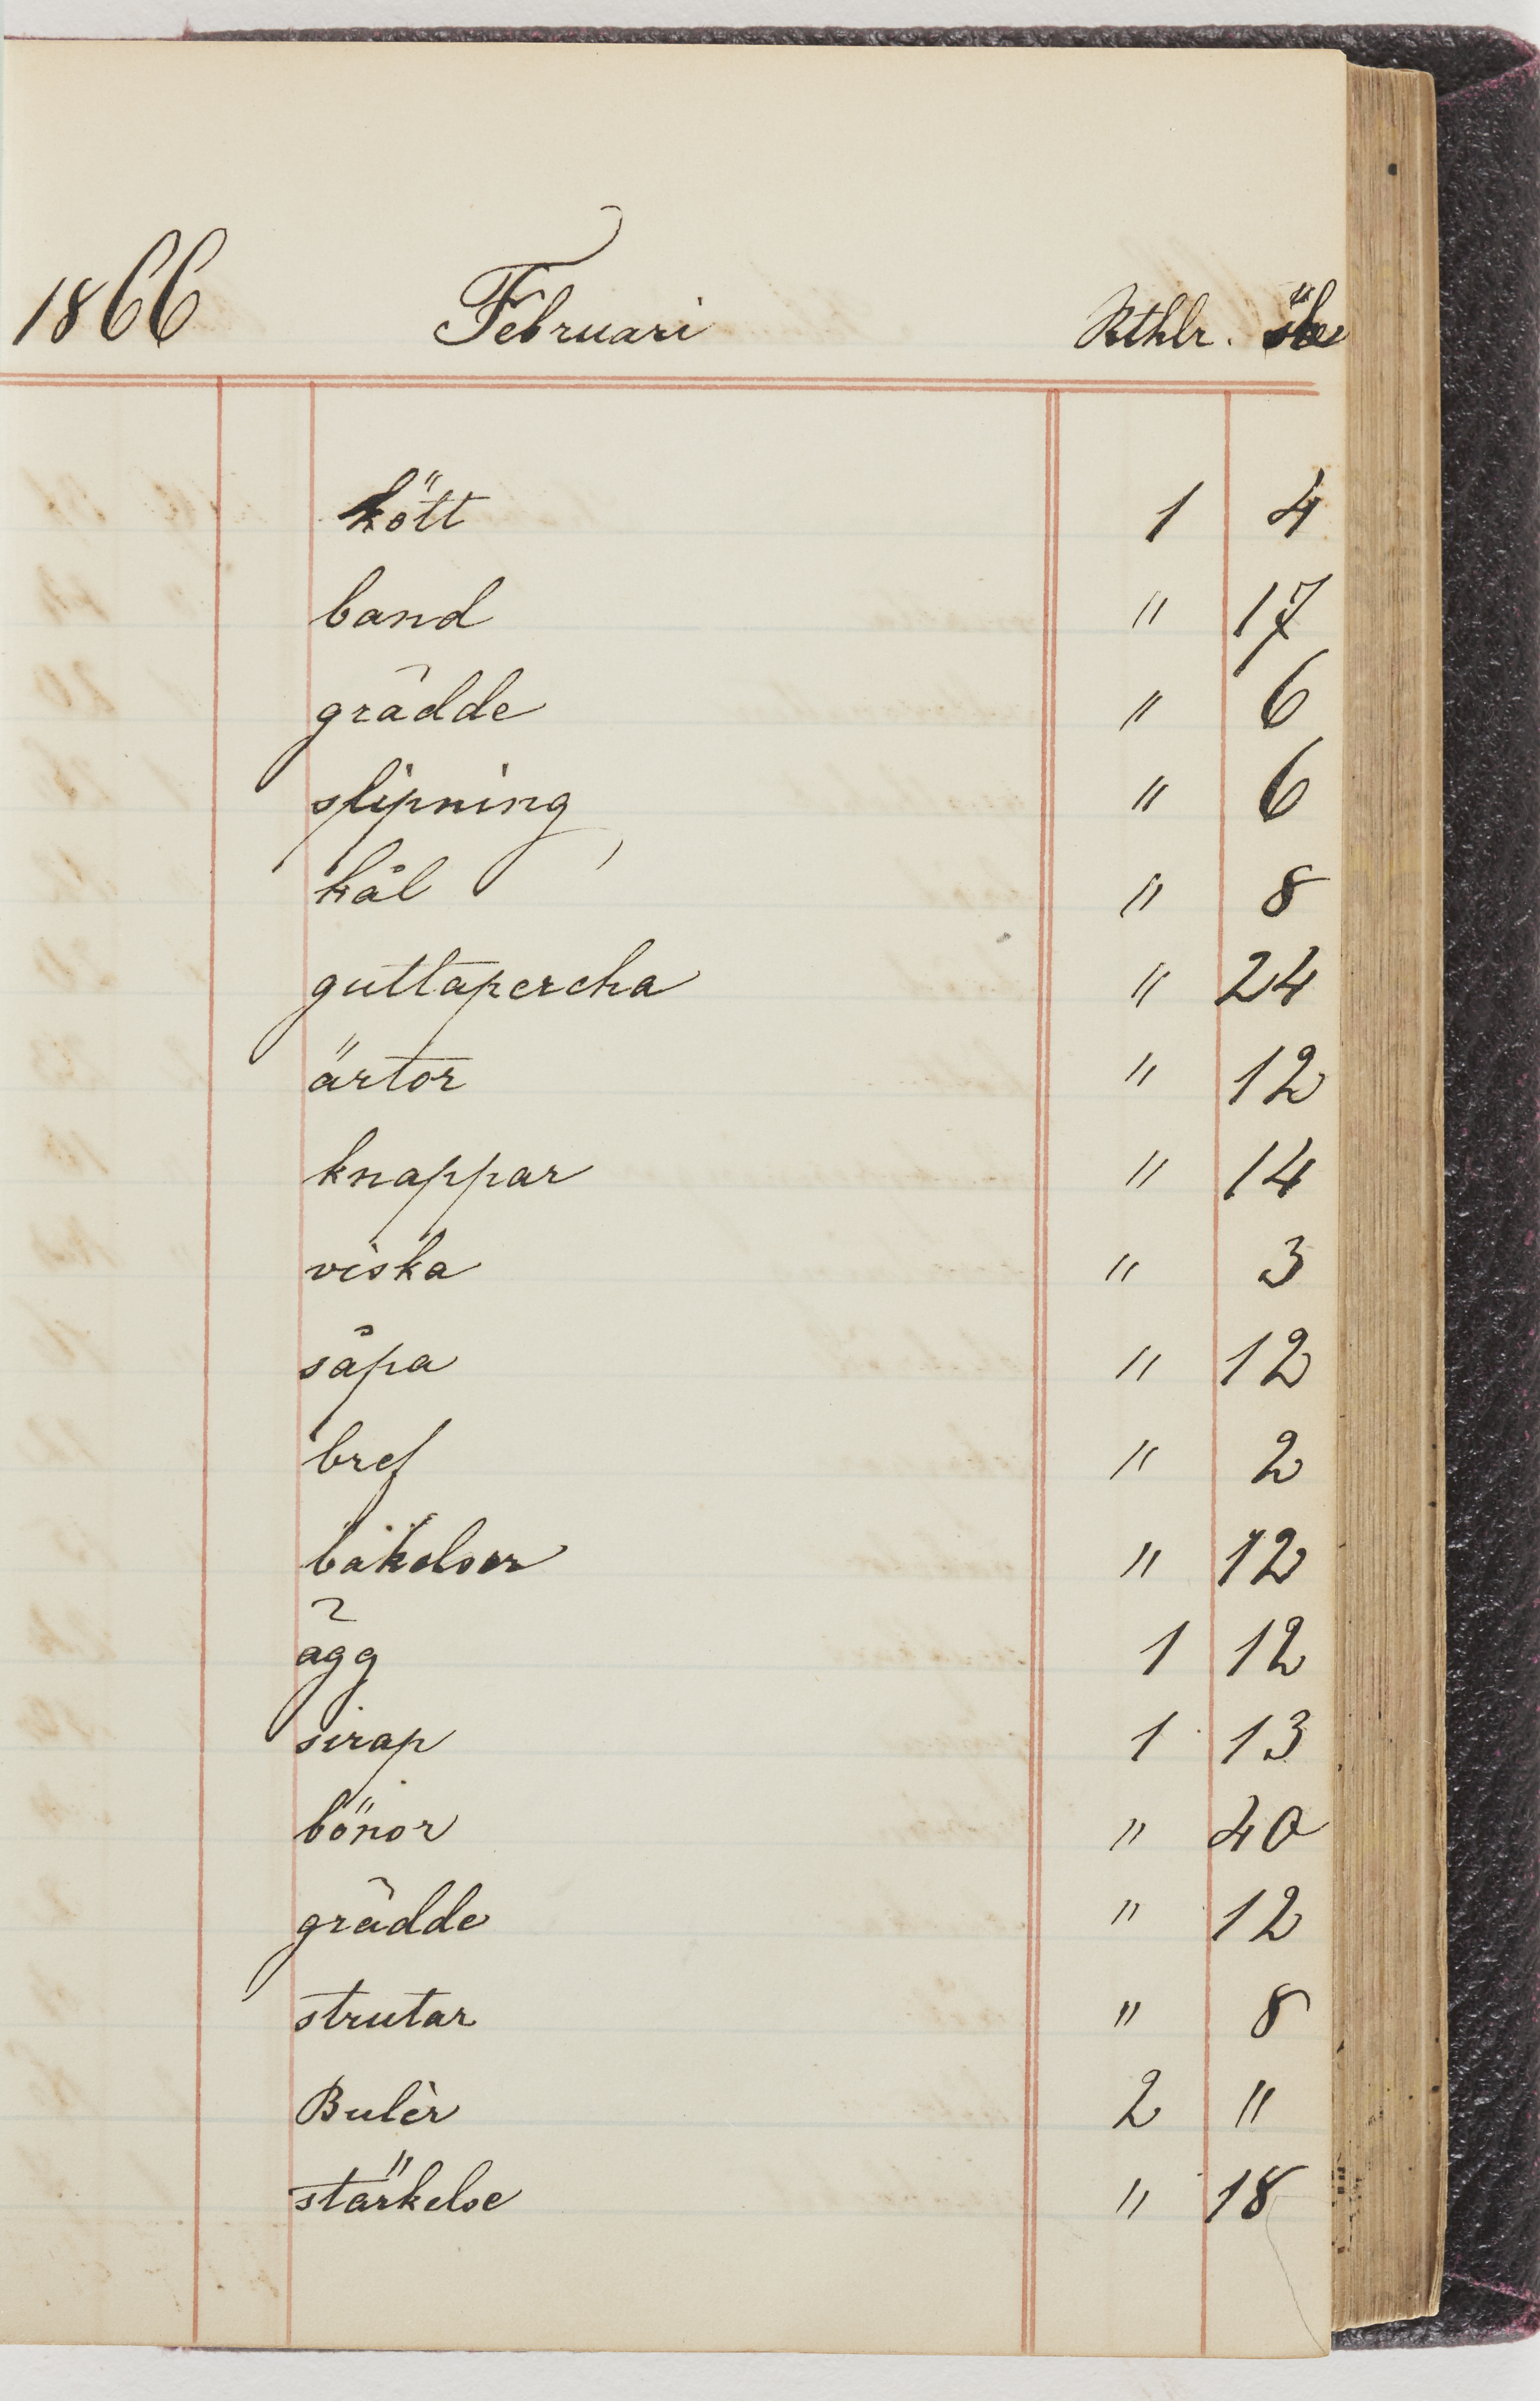 1866 Februari Rthlr. öre
kött 1 4
band " 17
grädde " 6
slipning " 6
kål " 8
guttapercha " 24
ärtor " 12
knappar " 14
viska " 3
såpa " 12
bref " 2
bakelser " 12
ägg 1 12
sirap 1 13
bönor " 40
grädde " 12
strutar " 8
Bulèr 2 "
stärkelse " 18